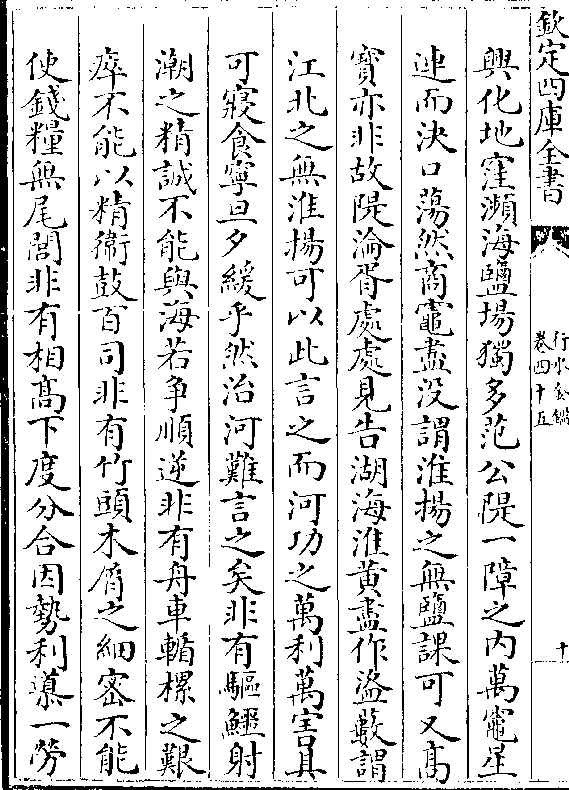 欽定四庫全書
行水金鑑
卷四十五
十
興化地窪瀕海鹽場獨多范公隄一障之内萬竈星
連而決口蕩然商竈盡没謂淮揚之無鹽課可又髙
寳亦非故隄淪胥處處見告湖海淮黄盡作盜藪謂
江北之無淮揚可以此言之而河功之萬利萬害具
可寢食寧旦夕緩乎然治河難言之矣非有驅鱷射
潮之精誠不能與海若争順逆非有舟車輴樏之艱
瘁不能以精衛鼓百司非有竹頭木屑之細密不能
使錢糧無尾閭非有相髙下度分合因勢利導一勞